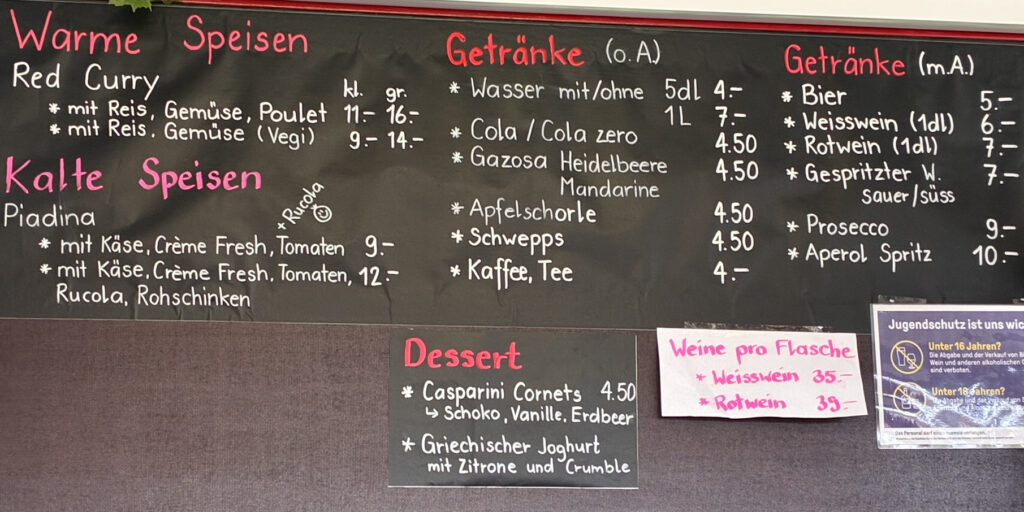 Warme Speisen
Red Curry kl. gr.
* mit Reis, Gemüse, Poulet 11.- 16.-
* mit Reis, Gemüse (Vegi) 9.- 14.-
Kalte Speisen
+ Rucola
Piadina
* mit Käse, Crème Fresh, Tomaten 9.-
* mit Käse, Crème Fresh, Tomaten, 12.-
Rucola, Rohschinken
Getränke (o.A)
* Wasser mit/ohne 5dl 4.-
1L 7.-
* Cola / Cola zero 4.50
* Gazosa Heidelbeere 4.50
Mandarine
* Apfelschorle 4.50
* Schwepps 4.50
* Kaffee, Tee 4.-
Getränke (m.A.)
* Bier 5.-
* Weisswein (1dl) 6.-
* Rotwein (1dl) 7.-
* Gespritzter W. 7.-
sauer/süss
* Prosecco 9.-
* Aperol Spritz 10.-
Dessert
* Casparini Cornets 4.50
↳ Schoko, Vanille, Erdbeer
* Griechischer Joghurt
mit Zitrone und Crumble
Weine pro Flasche
* Weisswein 35.-
* Rotwein 39.-
Jugendschutz ist uns
Unter 16 Jahren?
Die Abgabe und der Verkauf von
Wein und anderen alkoholischen
sind verboten.
Unter 18 Jahren?